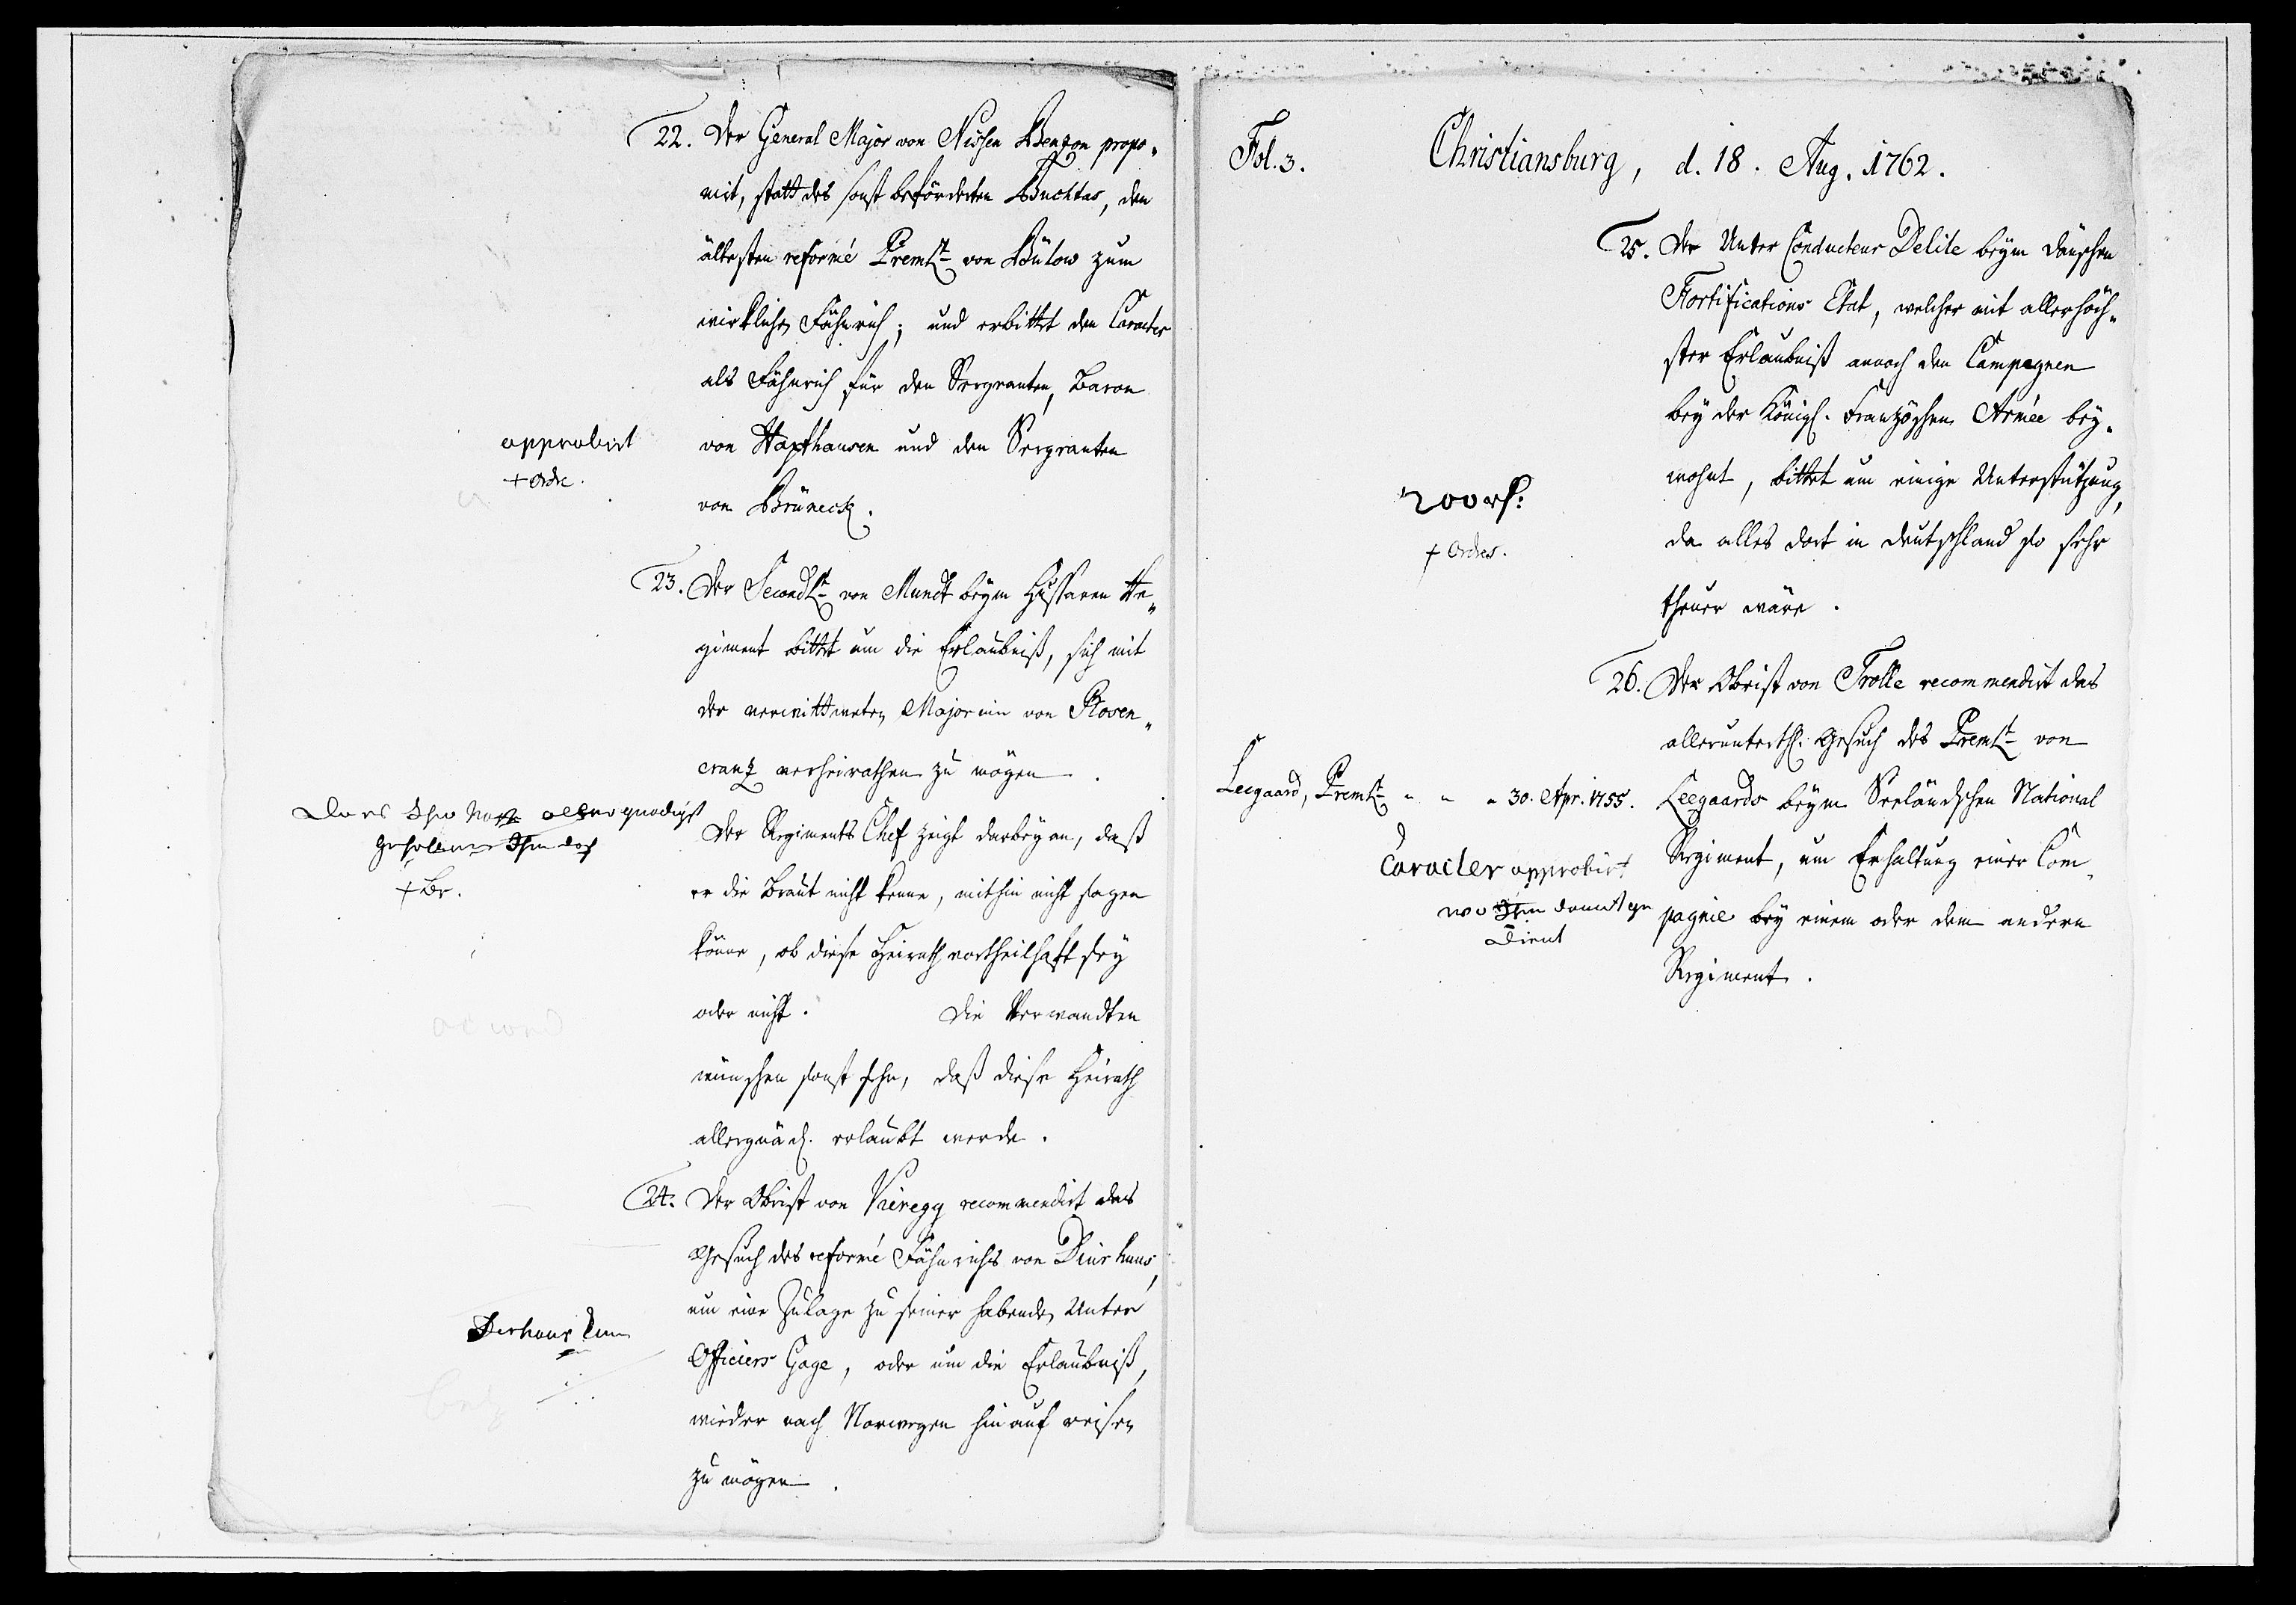 22. Der General Major von Nissen Benzon propo-
nirt, statt des sonst beförderten Buchtas, den
ältesten reformé PremLt von Bülow zum
wirklichen Fähnrich; und erbittet den Caracter
als Fähnrich für den Sergeanten, Baron
approbirt
+ Ordre.
von Haxthausen und den Sergeanten
von Brüneck.
23. Der SecondLt von Mundt beym Husaren Re-
giment bittet um die Erlaubniß, sich mit
der verwittweten Majorinn von Rosen-
crantz verheirathen zu mögen.
allergnädigst
+ Br.
Der Regiments Chef zeigt darbey an, daß
er die Braut nicht kenne, mithin nicht sagen
könne, ob diese Heirath vortheilhaft sey
oder nicht. Die Verwandten
wünschen sonst sehr, daß diese Heirath
allergnäd. erlaubt werde.
24. Der Obrist von Vieregg recommendirt das
Gesuch des reformé Fähnrichs von Diurhuus,
um eine Zulage zu seiner habenden Unter
Officiers Gage, oder um die Erlaubniß,
wieder nach Norwegen hinauf reisen
zu mögen.
Fol. 3.
Christiansburg, d. 18. Aug. 1762.
25. Der Unter Conducteur Delile beym Dänschen
Fortifications Etat, welcher mit allerhöch-
ster Erlaubniß annoch den Campagnen
bey der Königl. Französchen Armée bey-
wohnt, bittet um einige Unterstützung,
da alles dort in Deutschland so sehr
theuer wäre.
200 rh:
+ Ordres.
26. Der Obrist von Trolle recommendirt das
allerunterth. Gesuch des PremLt von
Leegaard, PremLt " " " 30. Apr. 1755.
Leegaards beym Seeländschen National
Regiment, um Erhaltung einer Com-
pagnie bey einem oder dem andern
Regiment.
Caracter approbirt
wo Ihm damit ge
dient